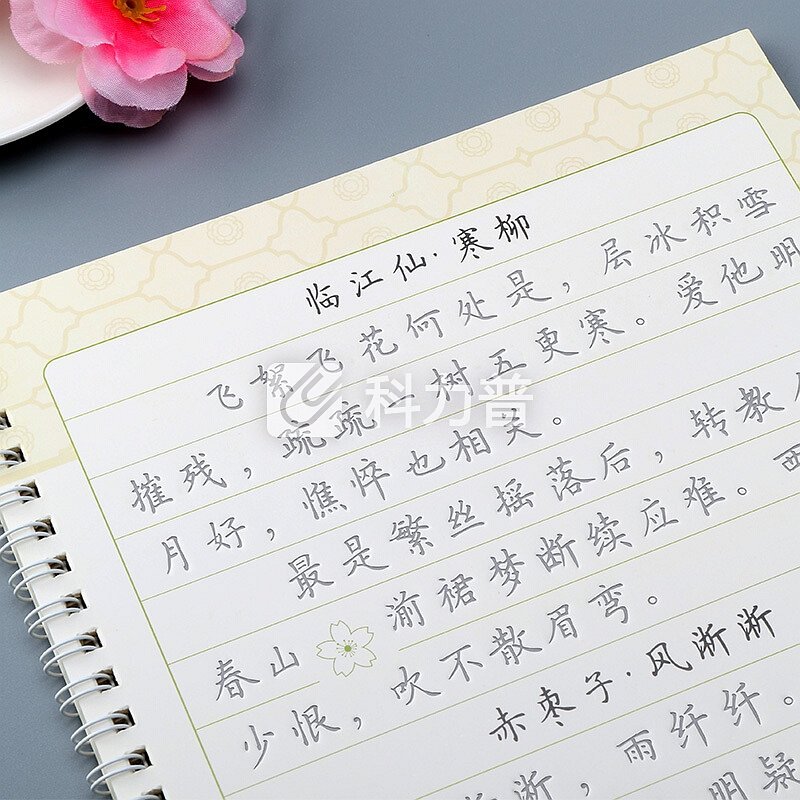 临江仙·寒柳
飞絮飞花何处是，层冰积雪
摧残，疏疏一树五更寒。爱他明
月好，憔悴也相关。
最是繁丝摇落后，转教
春山 湔裙梦断续应难。西
少恨，吹不散眉弯。
赤枣子·风淅淅
淅，雨纤纤。
明疑
科力普